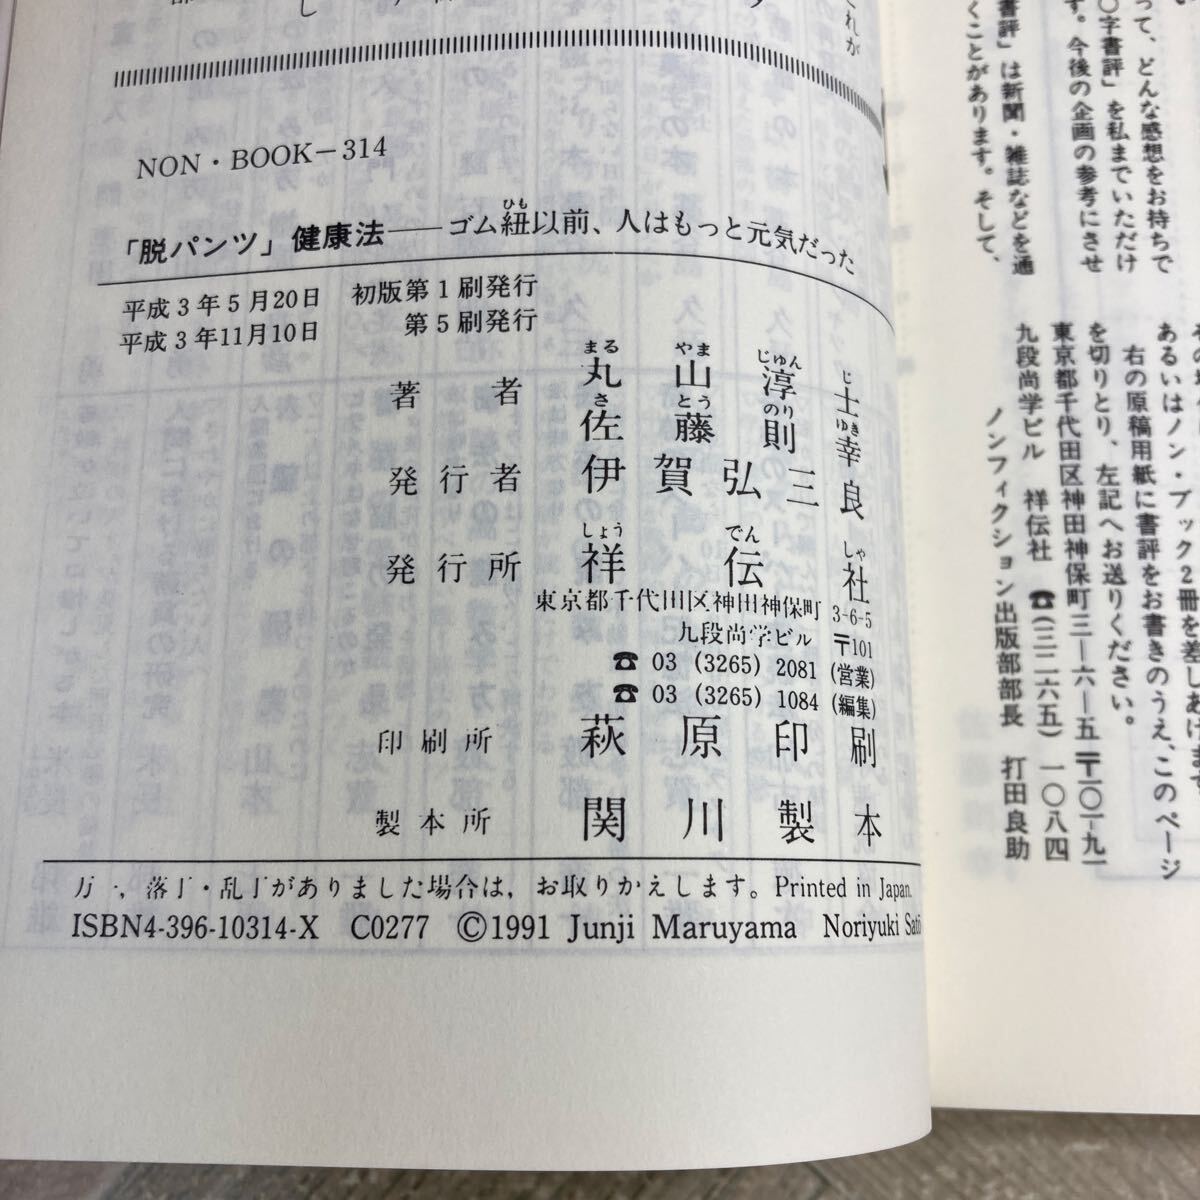 NON・BOOK－314
「脱パンツ」健康法——ゴム紐以前、人はもっと元気だった
ひも
平成3年5月20日 初版第1刷発行
平成3年11月10日 第5刷発行
まる やま じゅん じ
著者 丸山淳士
さ とう のり ゆき
佐藤則幸
発行者 伊賀弘三良
しょう でん しゃ
発行所 祥伝社
東京都千代田区神田神保町3-6-5
九段尚学ビル 〒101
☎03 (3265) 2081 (営業)
☎03 (3265) 1084 (編集)
印刷所 萩原印刷
製本所 関川製本
万一、落丁・乱丁がありました場合は、お取りかえします。Printed in Japan.
ISBN4-396-10314-X C0277 ©1991 Junji Maruyama Noriyuki
って、どんな感想をお待ちで
〇字書評」を私までいただけ
す。今後の企画の参考にさせ
書評」は新聞・雑誌などを通
くことがあります。そして、
あるいはノン・ブック2冊を差しあげます
右の原稿用紙に書評をお書きのうえ、このページ
を切りとり、左記へお送りください。
東京都千代田区神田神保町三―六―五 〒一〇一―九一
九段尚学ビル 祥伝社 ☎(三二六五)一〇八四
ノンフィクション出版部部長 打田良助